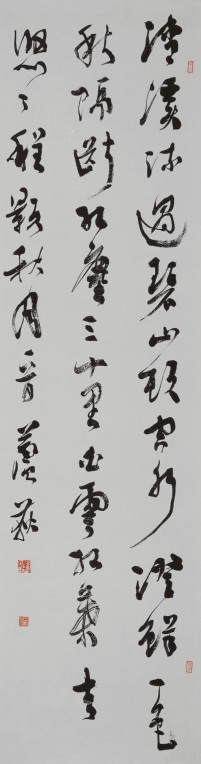 清溪流過碧山頭空水澄鮮一色
秋隔斷紅塵三十里白雲紅葉兩
悠〻程顥秋月一首蘆荻